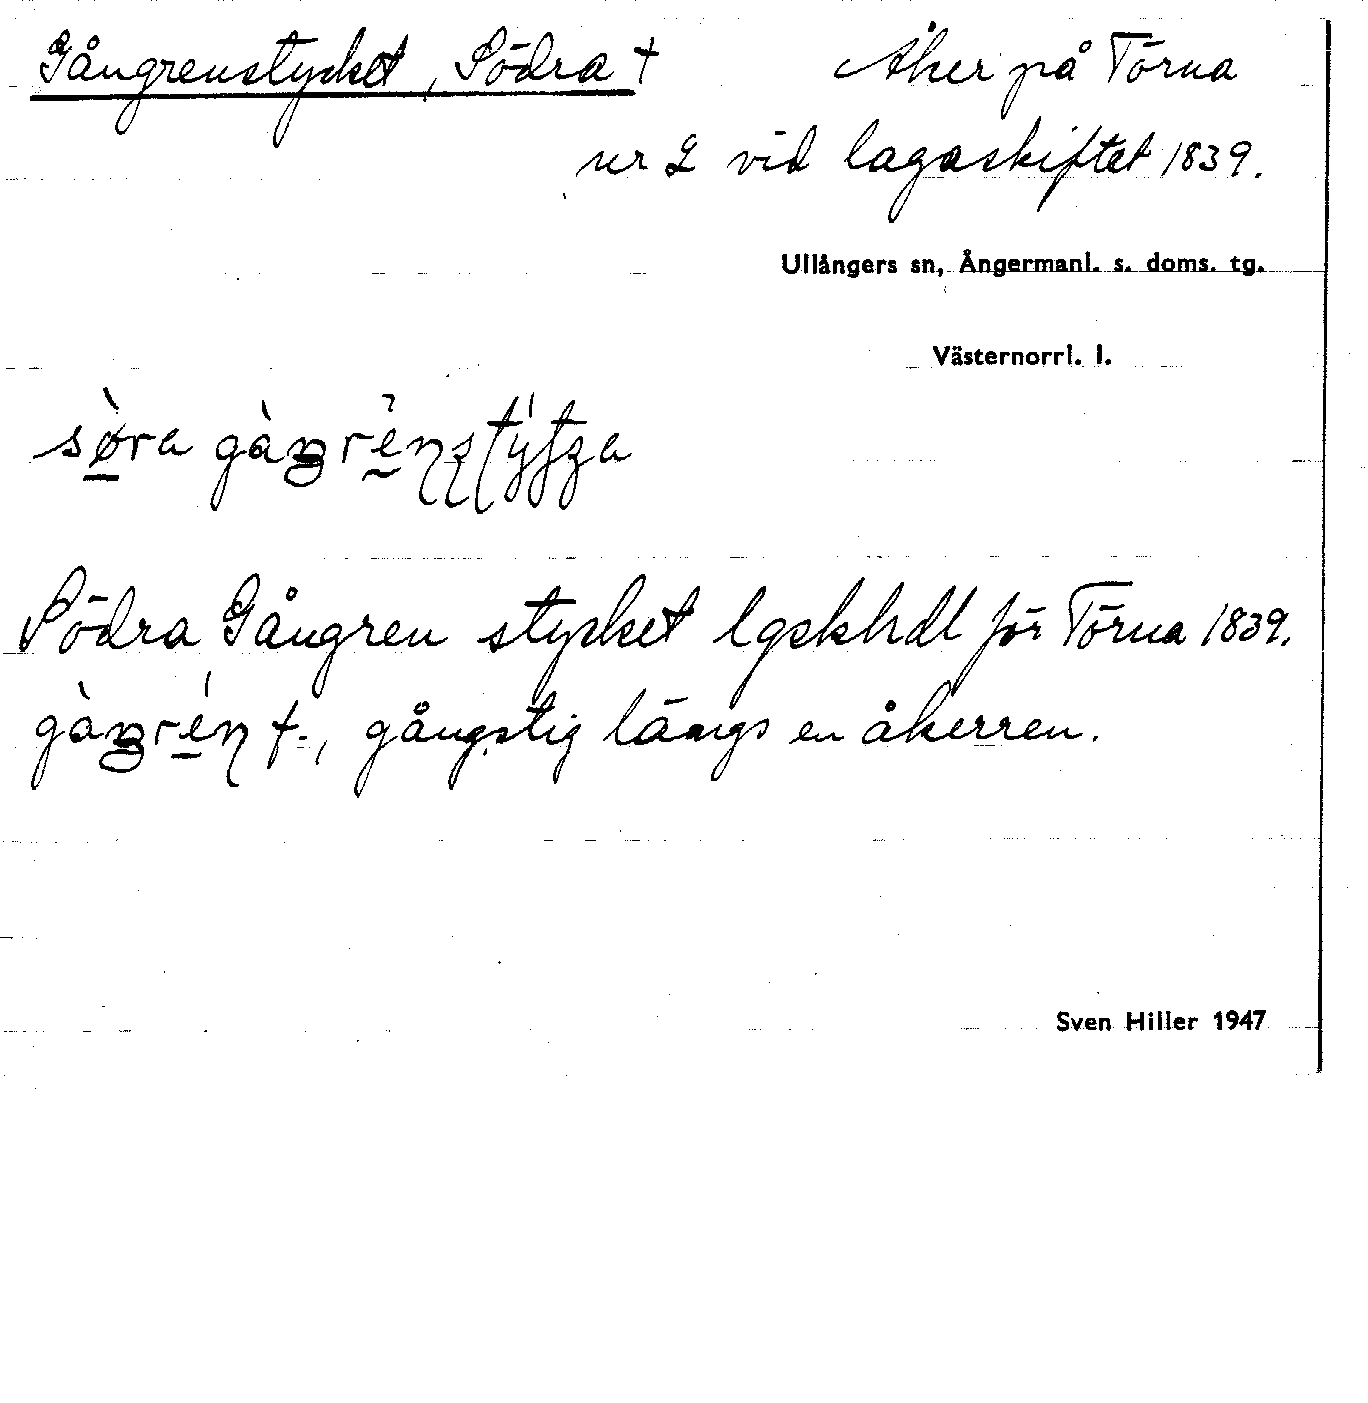 Gångrenstycket, Södra † Åker på Törna
nr 2 vid lagaskiftet 1839.
Ullångers sn, Ångermanl. s. doms. tg.
Västernorrl. l.
Södra Gångren stycket lgskhdl för Törna 1839.
f., gångstig längs en åkerren.
Sven Hiller 1947